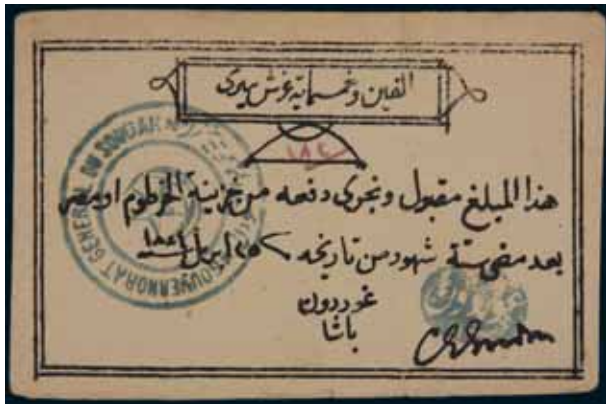 الفين وخمسماية غرش ميرى
١٨٤
هذا المبلغ مقبول ونجرى دفعه من خزينة الخرطوم او مصر
بعد مضى ستة شهور من تاريخه ٢٥ ابريل سنة ١٨٨٤
غوردون
باشا
GOUVERNORAT GENERAL DU SOUDAN